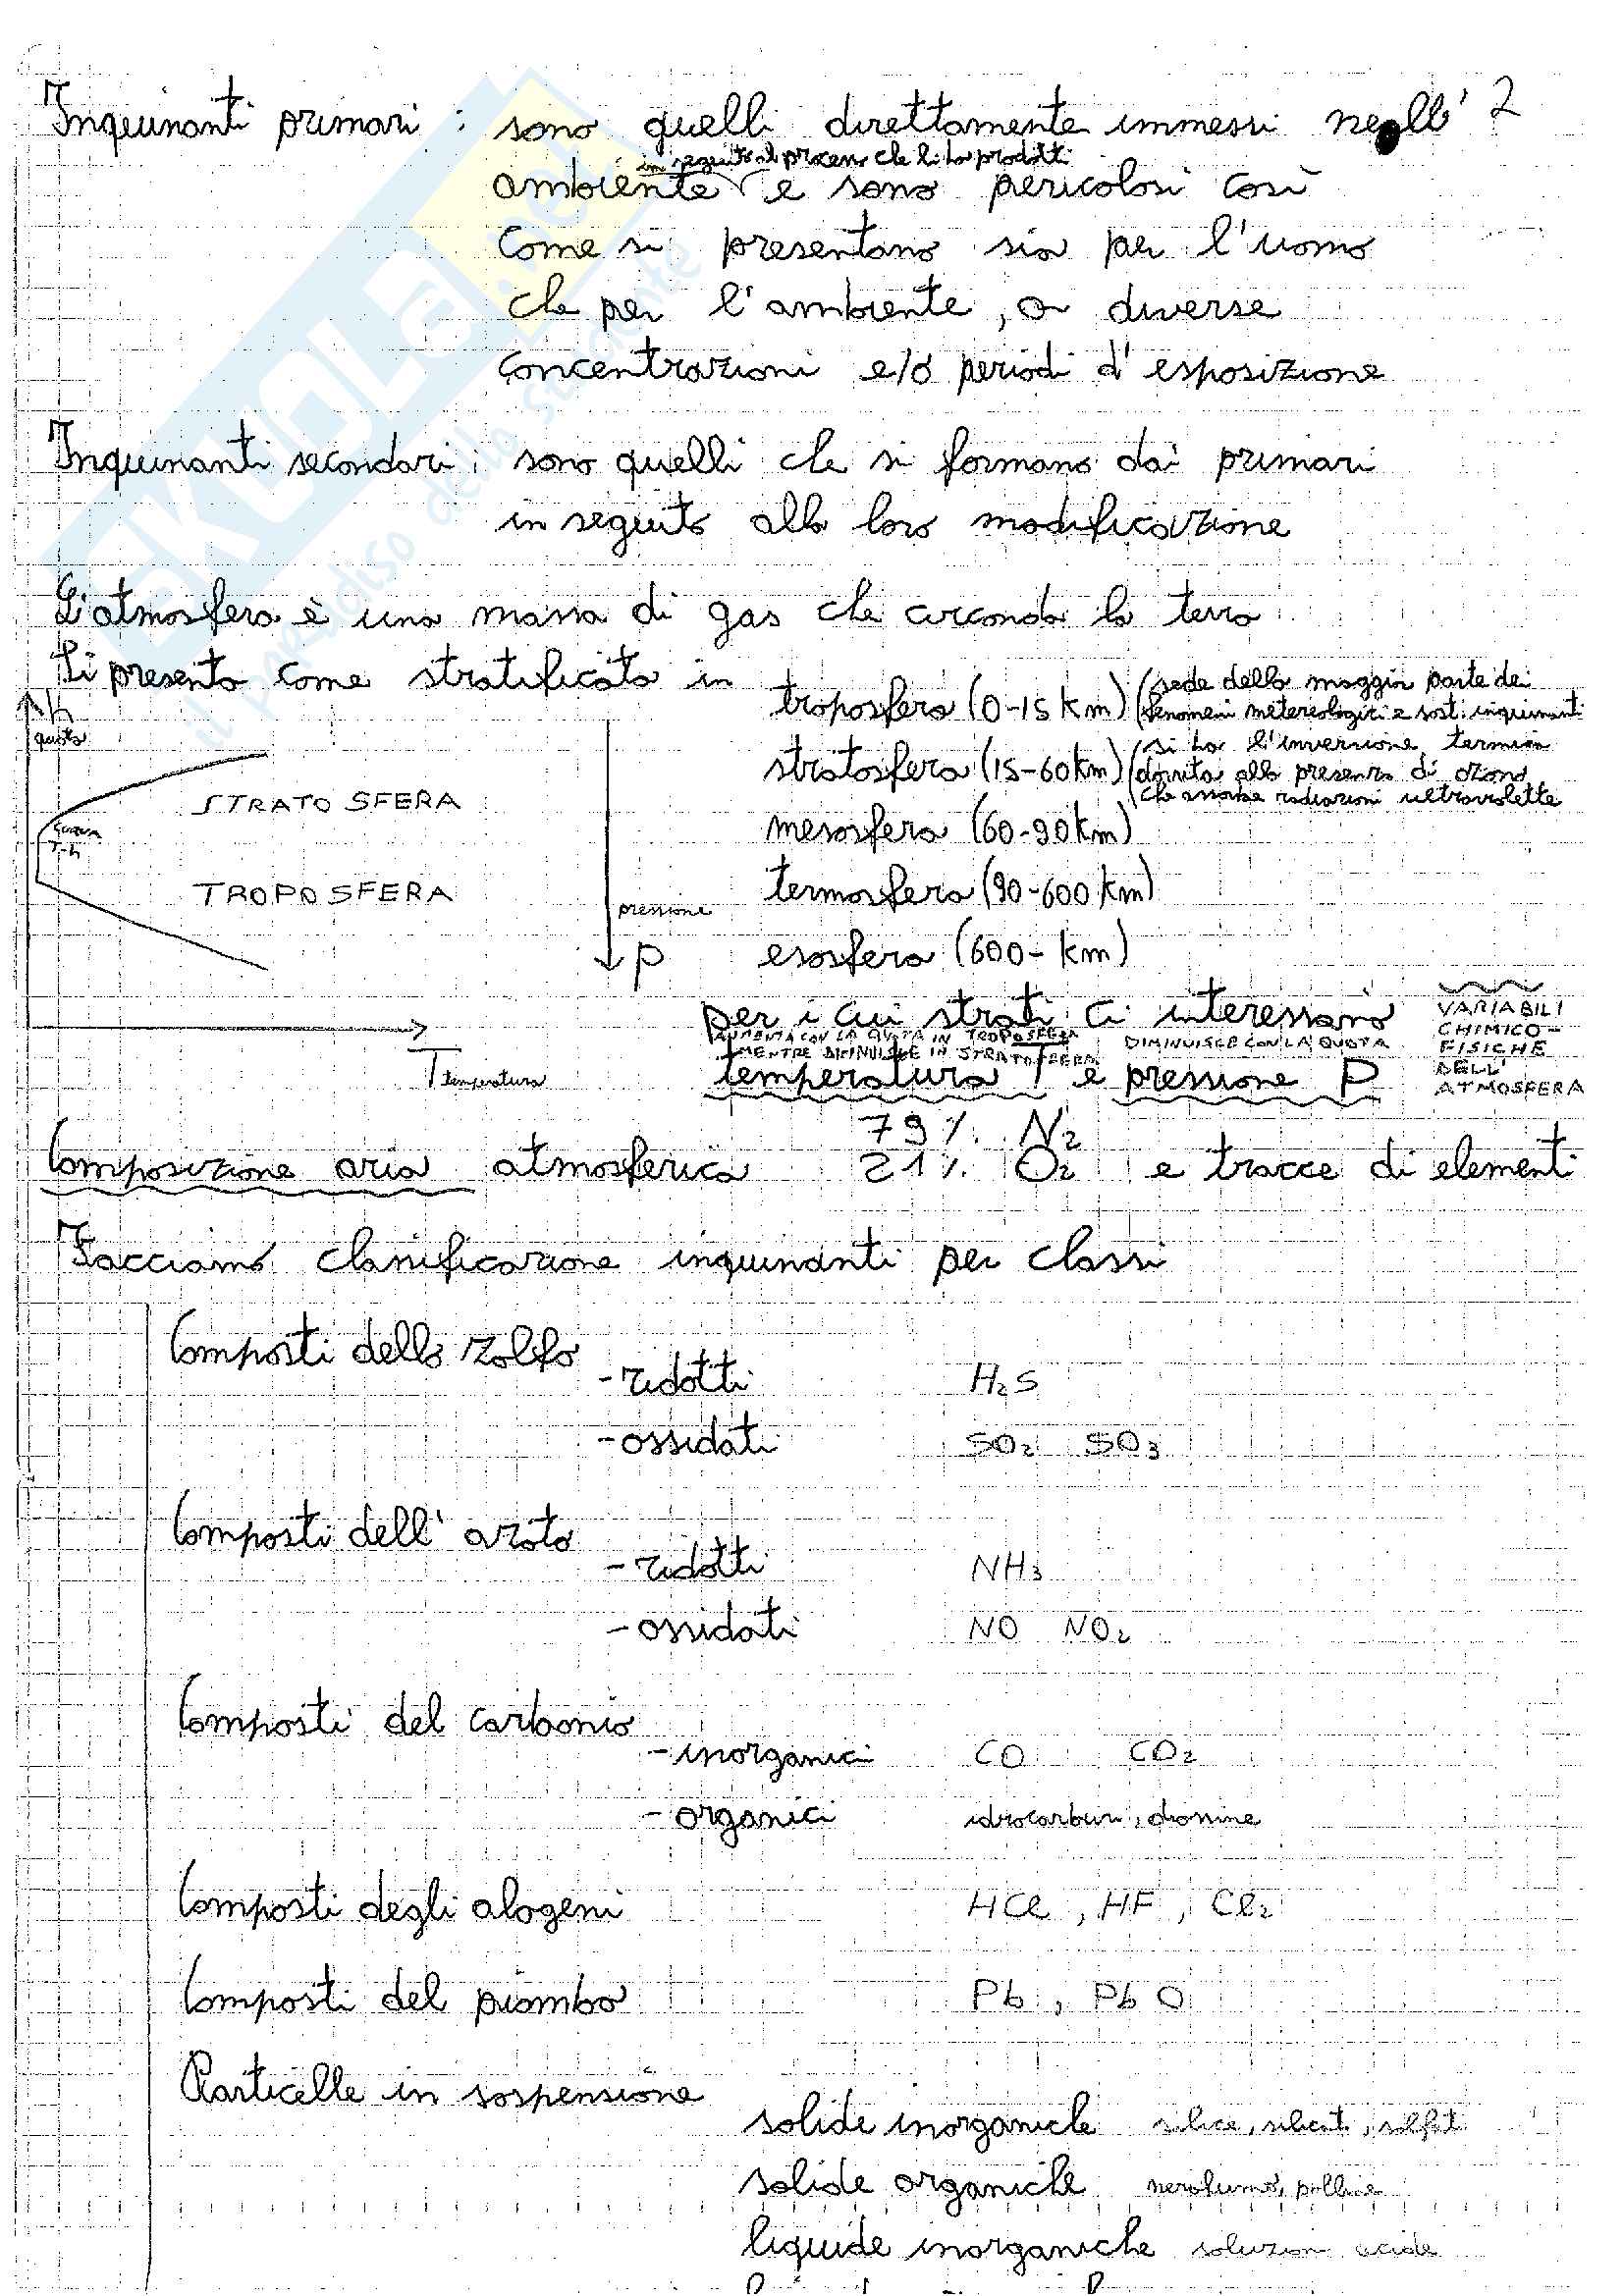 2
Inquinanti primari : sono quelli direttamente immessi nell'
in seguito al processo che li ha prodotti
ambiente e sono pericolosi così
come si presentano sia per l'uomo
che per l'ambiente, a diverse
concentrazioni e/o periodi d'esposizione
Inquinanti secondari : sono quelli che si formano dai primari
in seguito alla loro modificazione
L'atmosfera è una massa di gas che circonda la terra
Si presenta come stratificata in
troposfera (0-15 km) (sede della maggior parte dei
fenomeni metereologici e sost. inquinanti
stratosfera (15-60 km) (si ha l'inversione termica
dovuta alla presenza di ozono
che assorbe radiazioni ultraviolette
mesosfera (60-90 km)
termosfera (90-600 km)
esosfera (600- km)
h
quota
STRATOSFERA
curva
T-h
TROPOSFERA
pressione
P
T temperatura
per i cui strati ci interessano
AUMENTA CON LA QUOTA IN TROPOSFERA
MENTRE DIMINUISCE IN STRATOSFERA
DIMINUISCE CON LA QUOTA
temperatura T e pressione P
VARIABILI
CHIMICO-
FISICHE
DELL'
ATMOSFERA
79% N2
Composizione aria atmosferica 21% O2 e tracce di elementi
Facciamo classificazione inquinanti per classi
Composti dello zolfo
- ridotti H2S
- ossidati SO2 SO3
Composti dell'azoto
- ridotti NH3
- ossidati NO NO2
Composti del carbonio
- inorganici CO CO2
- organici idrocarburi, diossine
Composti degli alogeni HCl, HF, Cl2
Composti del piombo Pb, PbO
Particelle in sospensione
solide inorganiche silice, silicati, solfati
solide organiche nerofumo, polline
liquide inorganiche soluzioni acide